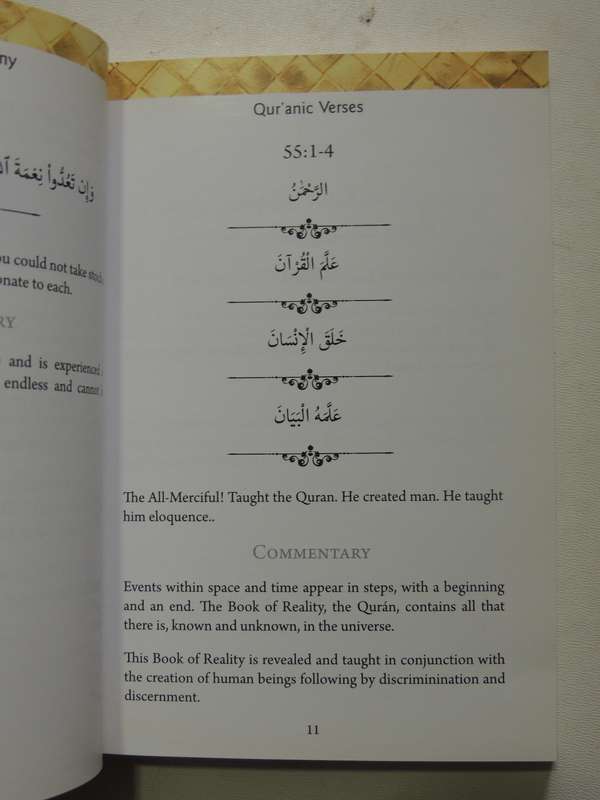 ny
وَإِن تَعُدُّوا۟ نِعْمَةَ
ou could not take stock
onate to each.
RY
and is experienced
endless and cannot
Qur'anic Verses
55:1-4
الرَّحْمَٰنُ
عَلَّمَ الْقُرْآنَ
خَلَقَ الْإِنْسَانَ
عَلَّمَهُ الْبَيَانَ
The All-Merciful! Taught the Quran. He created man. He taught
him eloquence..
Commentary
Events within space and time appear in steps, with a beginning
and an end. The Book of Reality, the Qurán, contains all that
there is, known and unknown, in the universe.
This Book of Reality is revealed and taught in conjunction with
the creation of human beings following by discriminination and
discernment.
11